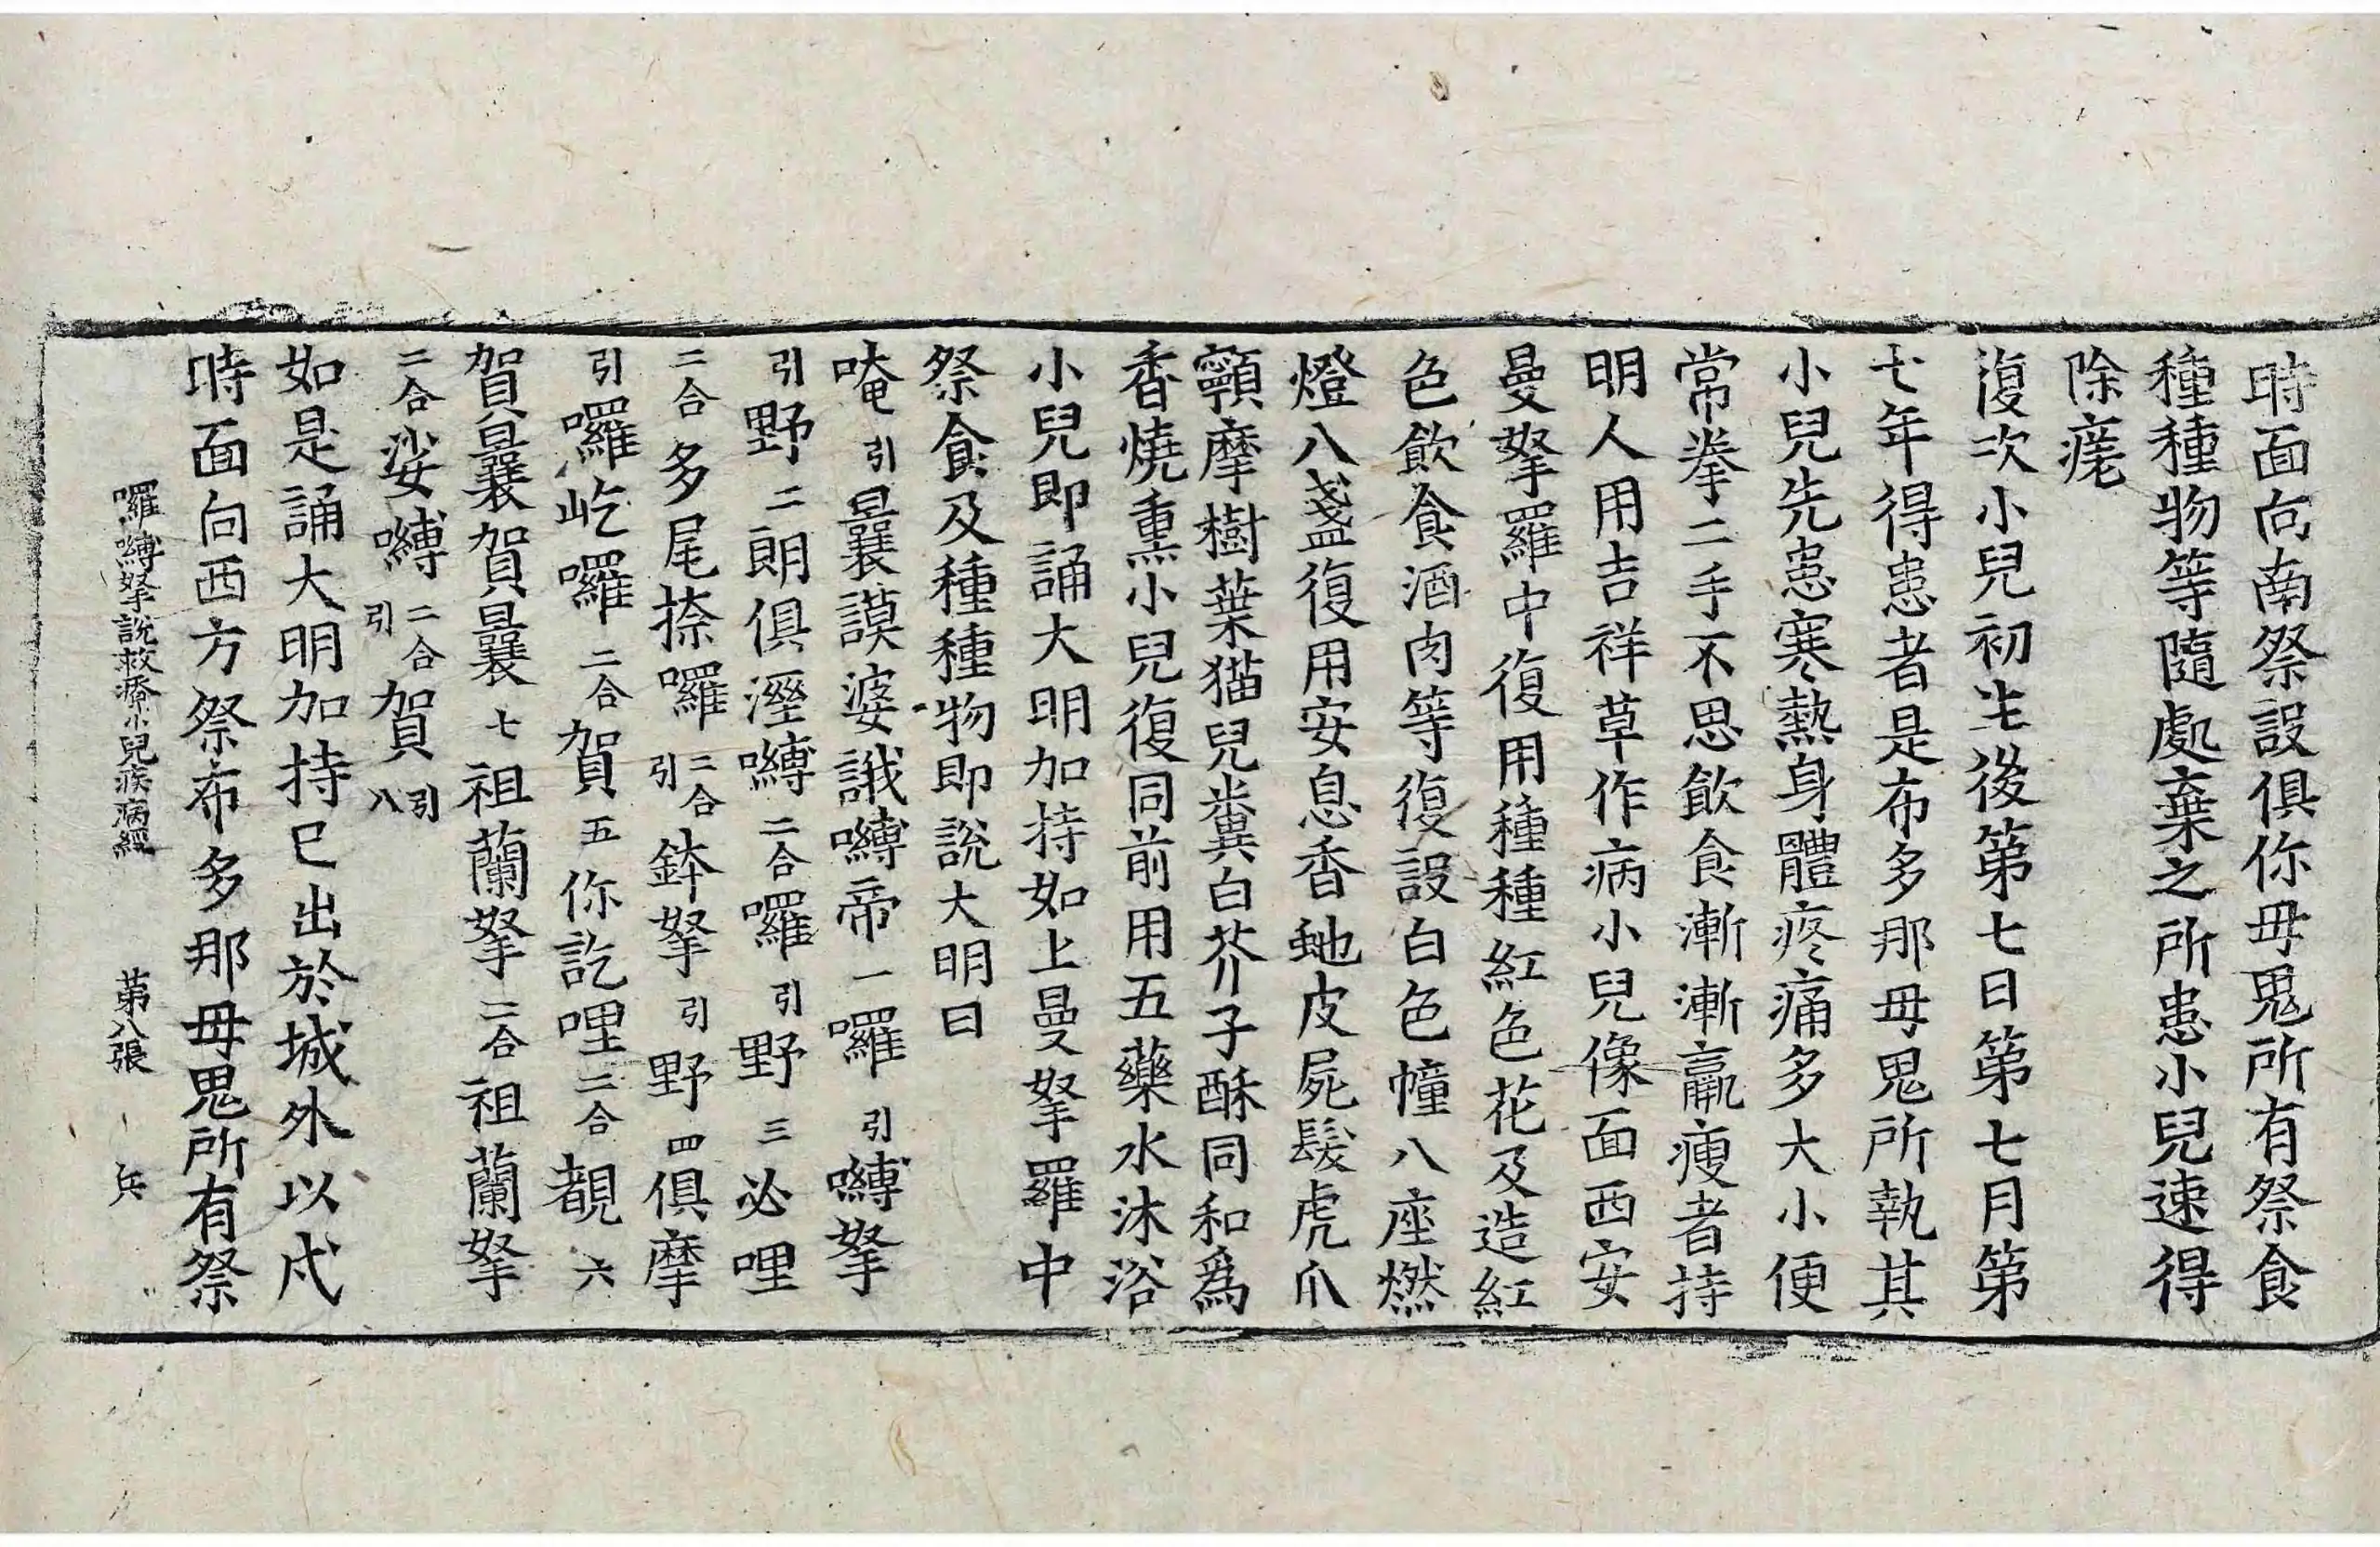 時面向南祭設俱你毋鬼所有祭食
種種物等隨處棄之所患小兒速得
除瘥
復次小兒初生後第七日第七月第
七年得患者是布多那毋鬼所執其
小兒先患寒熱身體疼痛多大小便
常拳二手不思飲食漸漸羸瘦者持
明人用吉祥草作病小兒像面西安
曼拏羅中復用種種紅色花及造紅
色飲食酒肉等復設白色幢八座燃
燈八盞復用安息香虵皮屍髮虎爪
顰摩樹葉猫兒糞白芥子酥同和為
香燒熏小兒復同前用五藥水沐浴
小兒即誦大明加持如上曼拏羅中
祭食及種種物即說大明曰
唵引曩謨婆誐嚩帝一囉引嚩拏
引野二朗俱溼嚩二合囉引野三必哩
二合多尾捺囉二合引鉢拏引野四俱摩
引囉屹囉二合賀五你訖哩二合覩六
賀曩賀曩七祖蘭拏二合祖蘭拏
二合娑嚩二合引賀引八
如是誦大明加持已出於城外以戍
時面向西方祭布多那毋鬼所有祭
囉嚩拏說救療小兒疾病經 第八張 兵